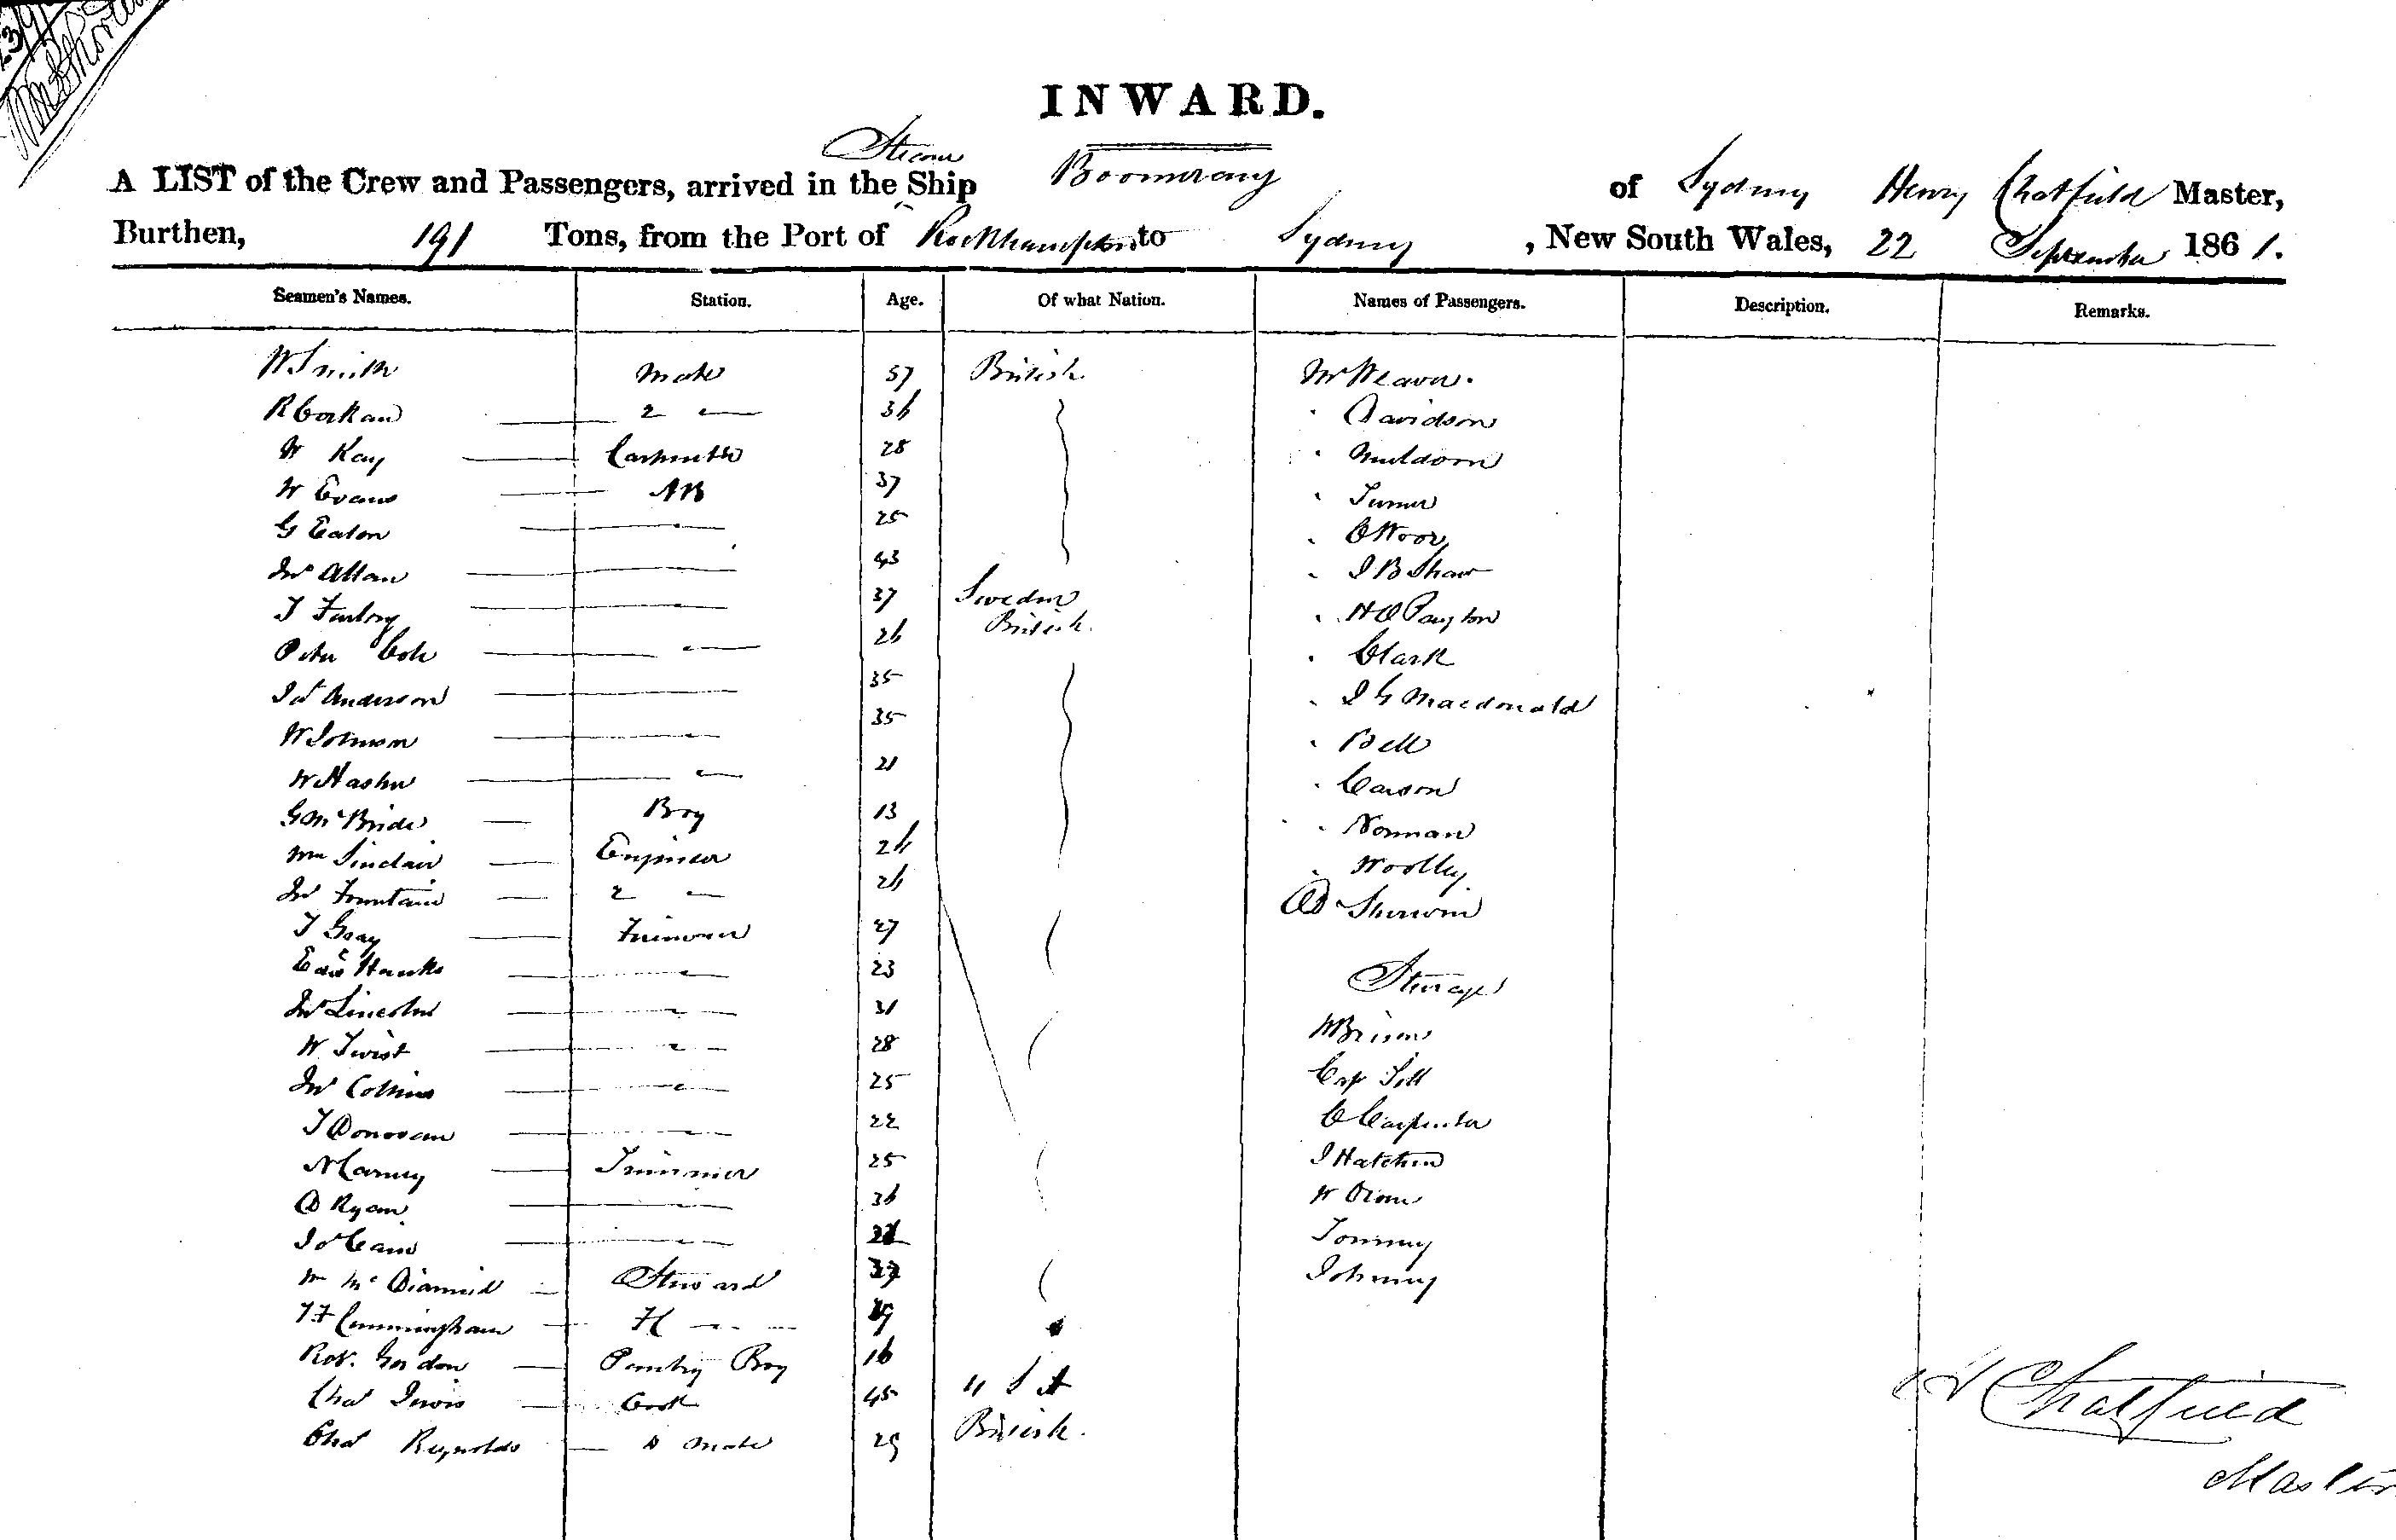 INWARD.
Steam
A LIST of the Crew and Passengers, arrived in the Ship Boomerang of Sydney Henry Chatfield Master,
Burthen, 191 Tons, from the Port of Rockhampton to Sydney , New South Wales, 22 September 1861.
Seamen's Names. Station. Age. Of what Nation. Names of Passengers. Description. Remarks.
W Smith Mate 57 British Mr Weaver.
R Corkan 2 " 36 " Davidson
W Kay Carpenter 28 " Muldoon
W Evans AB 37 " Turner
G Eaton " 25 "
Jno Allan 43 " J B Shaw
T Furlong " 37 Sweden " H O Payton
Peter Cole " 26 British " Clark
Jas Anderson 35 " J G Macdonald
W Johnson " 35 " Bell
W " 21 " Carson
G McBride Boy 13 " Norman
Wm Sinclair Engineer 26 " Woolley
Jno Fountain 2 " 26 Sherwin
T Gray Fireman 27
Hawks " 23 Steerage
Jno Lincoln " 31
W Twist " 28
Jno Collins " 25 C Carpenter
T Donovan " 22
Carney Trimmer 25
D Ryan 36 Tommy
Jas Cain " Johnny
Wm McDiarmid Steward
Cunningham
Robt. Gordon Pantry Boy 16
Chas Cook 45
Chas Reynolds Mate 29 British.
H Chatfield
Master